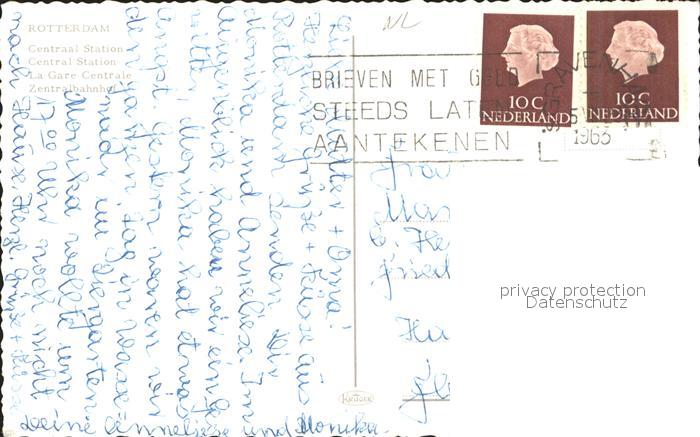 ROTTERDAM
Centraal Station
Central Station
La Gare Centrale
Zentralbahnhof
NL
BRIEVEN MET GELD
STEEDS LATEN
AANTEKENEN
'S-GRAVENHAGE
1963
10 C
NEDERLAND
10 C
NEDERLAND
Liebe Mutter + Oma!
Herzliche Grüße + Küsse aus
Rotterdam senden Dir
Monika und Anneliese. Im
Augenblick haben wir ein
Monika hat etwas
Angst. Gestern waren wir
den ganzen Tag in
im Tiergarten
Monika wollte um
17.00 Uhr noch nicht
nach Hause. Herzl. Grüße +
Deine Anneliese und Monika.
Frau
Mar
Ha
privacy protection
Datenschutz
KRÜGER